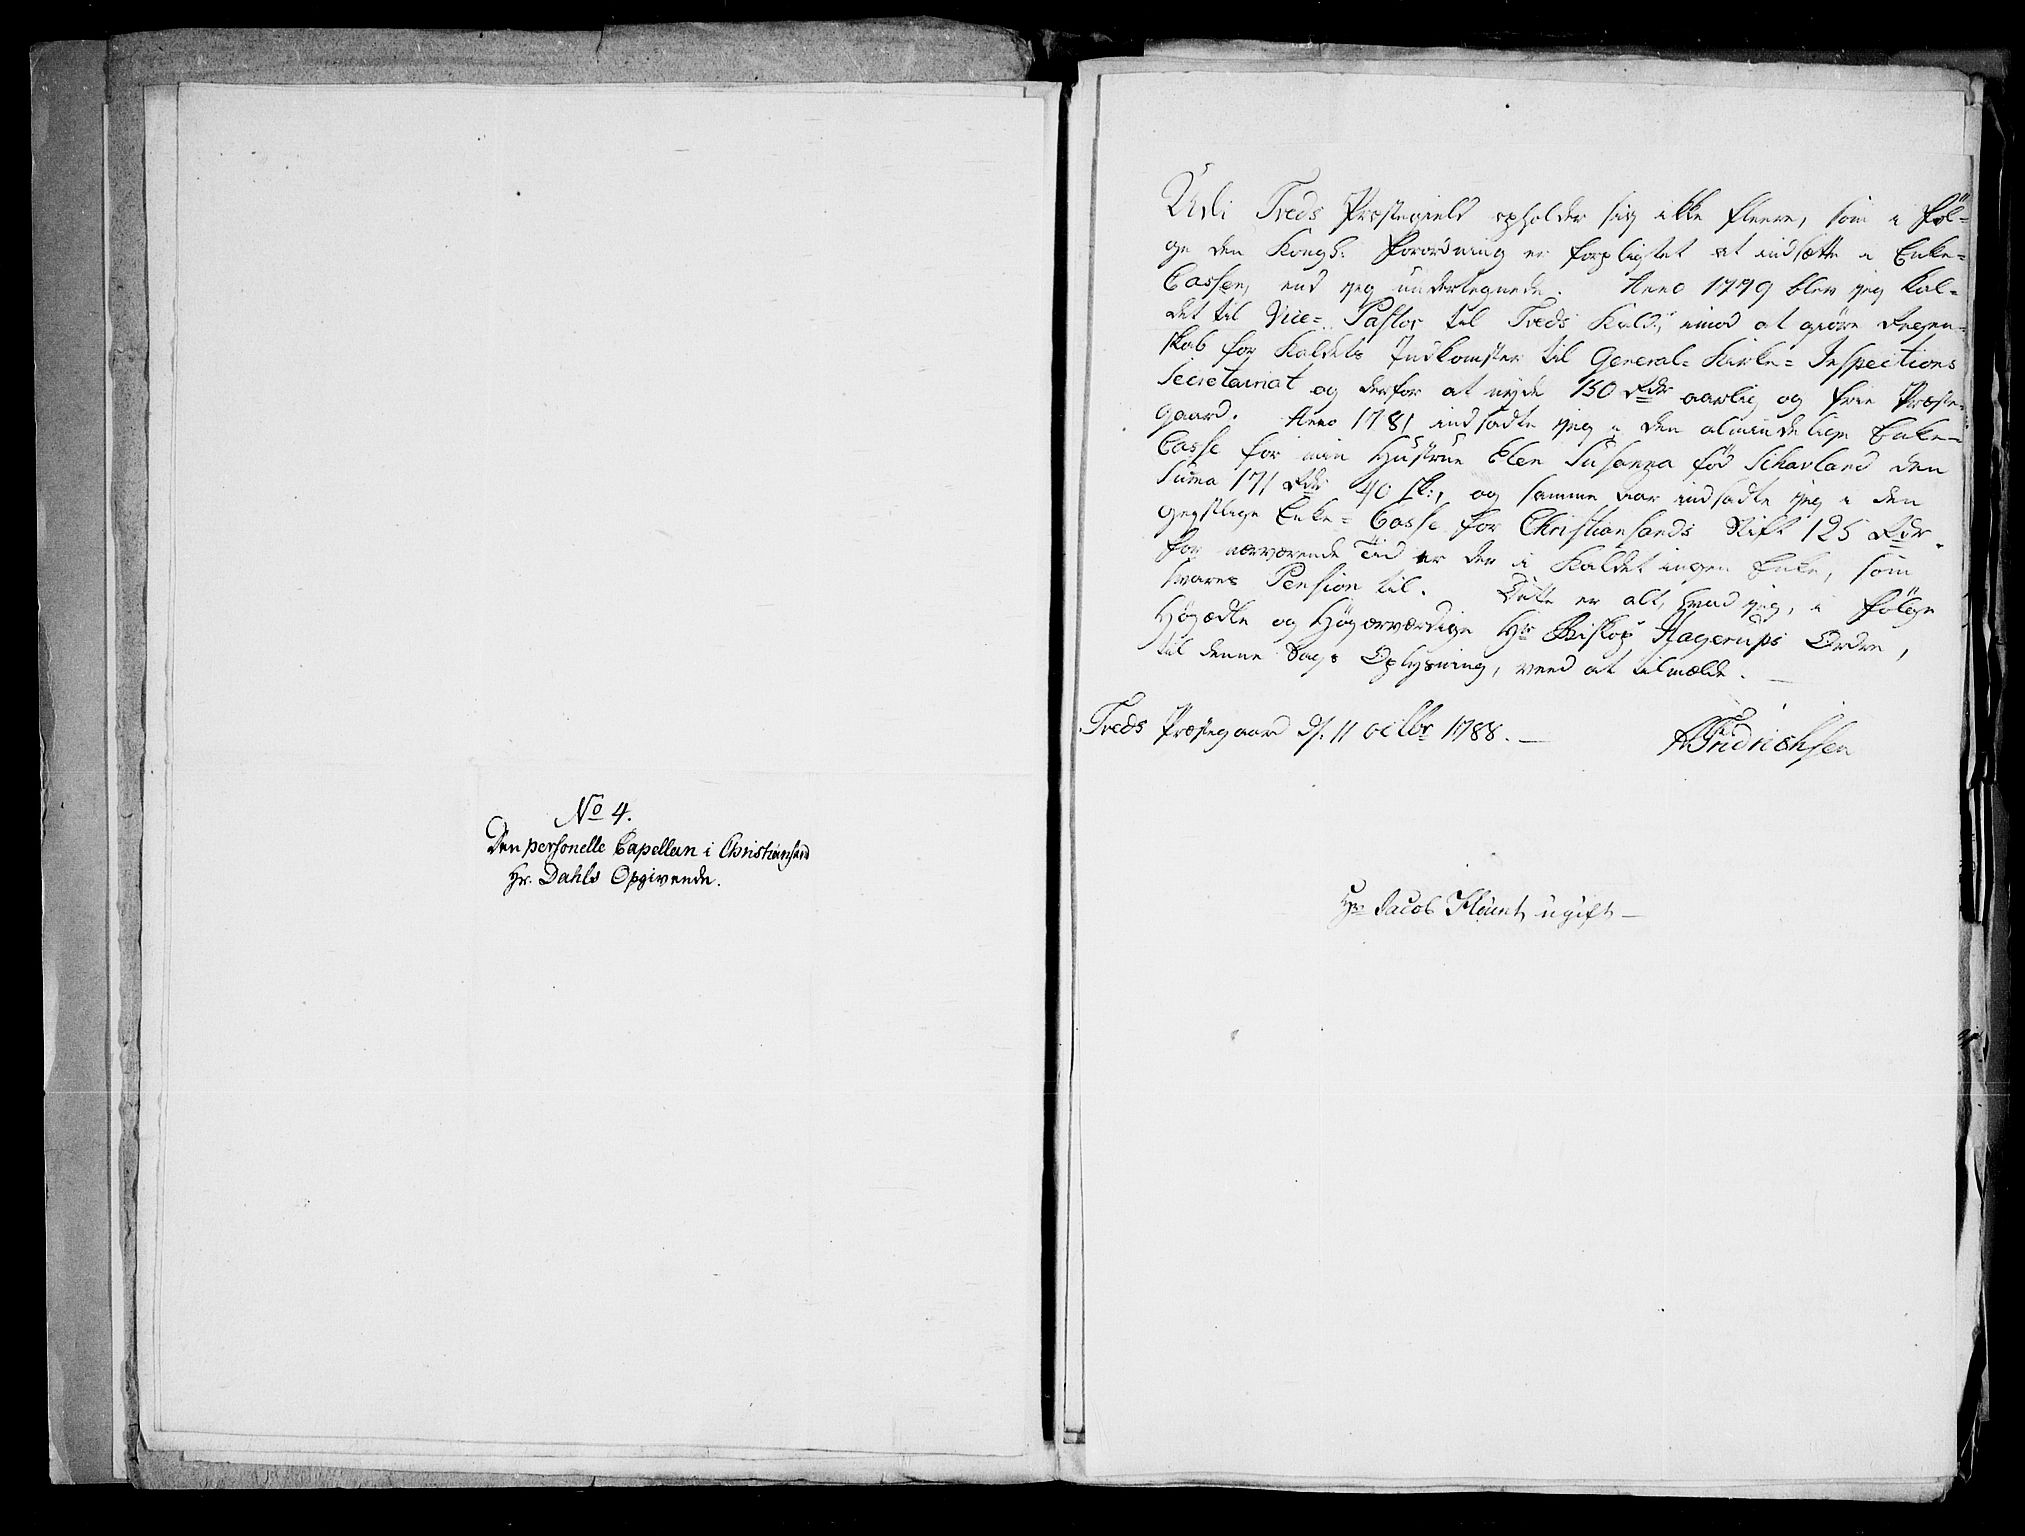 No 4.
Den personelle Capellan i Christiansand
Hr. Dahls Opgivende.
Udi Treds Præstegield opholder sig ikke fleere, som i Føl-
ge den Kongl: Forordning er forpligtet at indsætte i Enke-
Cassen, end jeg underteignede. Anno 1779 blev jeg kal-
det til Vice-Pastor til Treds Kald, imod at giøre Regen-
skab for Kaldets Indkomster til General-Kirke-Inspections
Secretairiat og derfor at nyde 150 Rdr aarlig og frie Præste-
gaard. Anno 1781 indsadte jeg i den almindelige Enke-
Casse for min Hustrue Elen Susanna fød Schavland den
Suma 171 Rdr 40 sk:, og samme aar indsadte jeg i den
geystlige Enke-Casse for Christiansands Stift 125 Rdr.
For nærværende Tid er der i Kaldet ingen Enke, som
svares Pension til. Dette er alt, hvad jeg, i Følge
Høyædle og Høyærværdige Hr Biskop Hagerups Ordre,
til denne Sags Oplysning, veed at tilmælde.
Treds Præstegaard d. 11 octbr 1788.
Fridrichsen
Hr Jacob ugift